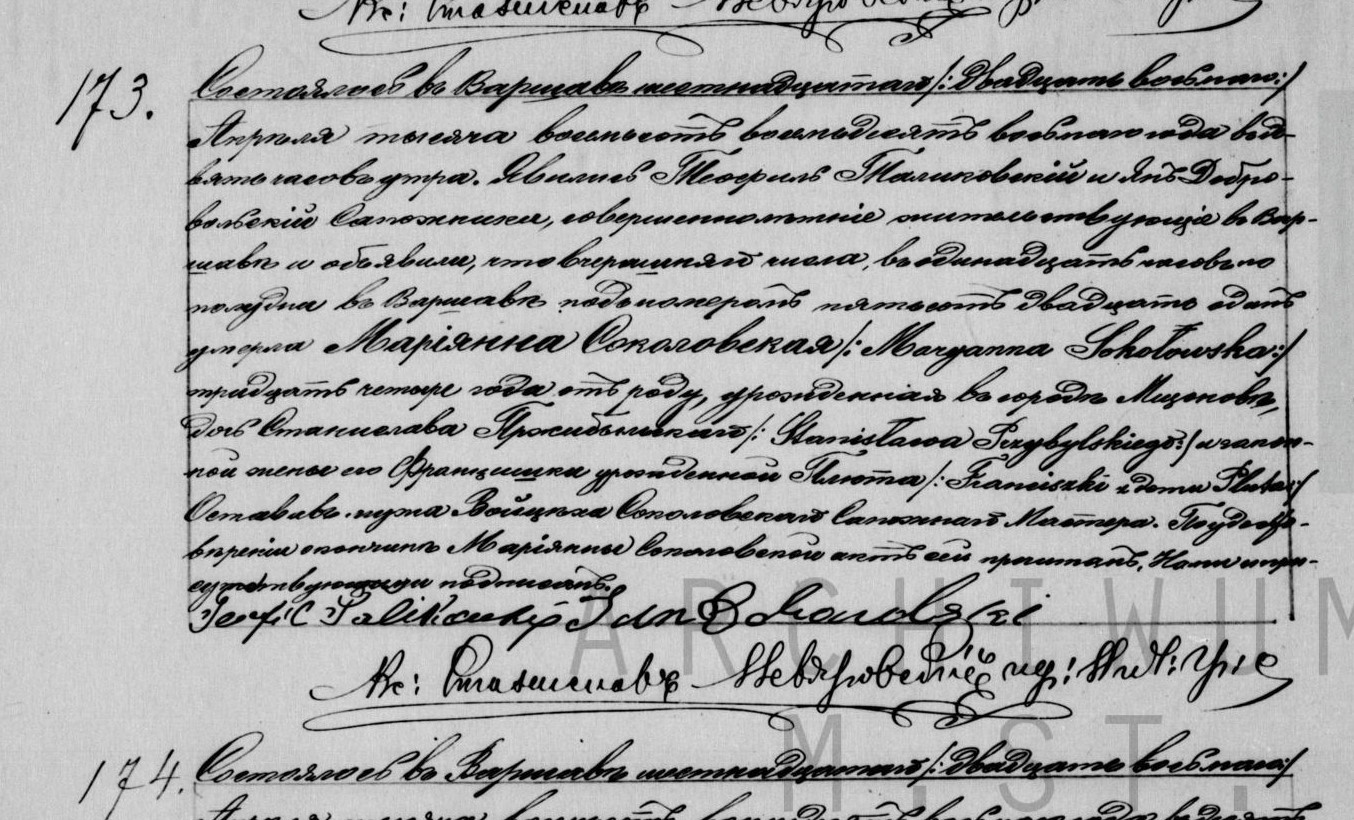 173.
Состоялось въ Варшавѣ шестнадцатаго /: двадцать восьмаго :/
Апрѣля тысяча восемьсотъ восемьдесятъ восьмаго года въ де-
вять часовъ утра. Явились Теофиль Таликовскій и Янъ Добро-
вольскій сапожники, совершеннолѣтніе жительствующіе въ Вар-
шавѣ и объявили, что вчерашняго числа, въ одинадцать часовъ по
полудни въ Варшавѣ подъ номеромъ пятьсотъ двадцать одинъ
умерла Маріянна Соколовская /: Maryanna Sokołowska :/
тридцать четыре года отъ роду, урожденная въ городѣ Мщоновѣ,
дочь Станислава Пржибыльскаго /: Stanisława Przybylskiego :/ и закон-
ной жены его Францишки урожденной Плюта /: Franciszki z domu Pluta :/
Оставивъ мужа Войцѣха Соколовскаго Сапожнаго Мастера. По удосто-
вѣреніи о кончинѣ Маріянны Соколовской актъ сей прочитанъ, Нами и при-
сутствующими подписанъ.
Teofil Talikowski Jan
Кс: Станиславъ
ARCHIWUM
M. ST.
174.
Состоялось въ Варшавѣ шестнадцатаго /: двадцать восьмаго :/
Апрѣля тысяча восемьсотъ восемьдесятъ восьмаго года въ десять